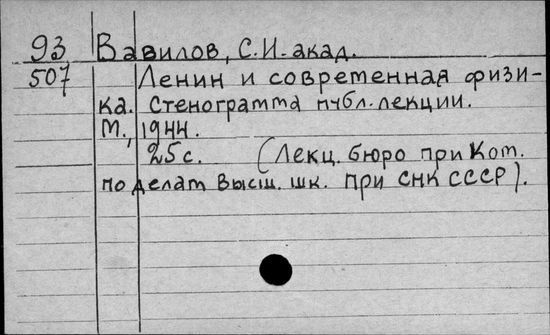 93 Вавилов, С.И. акад.
507 Ленин и современная физи-
ка. Стенограмма публ. лекции.
М., 1944.
25 с. (Лекц. бюро при Ком.
по делам Высш. шк. при СНК СССР).